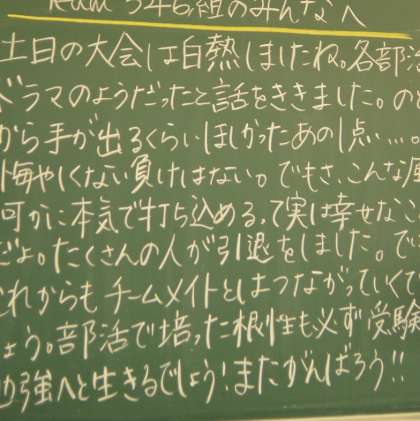 346組のみんなへ
土日の大会は白熱しましたね。各部活
ドラマのようだったと話をききました。の
から手が出るくらいほしかったあの1点…。
悔やしくない負けはない。でもさ、こんな風
何かに本気で打ち込める、て実は幸せなこ
だよ。たくさんの人が引退をしました。で
これからもチームメイトとはつながっていくで
ょう。部活で培った根性も必ず受験
勉強へと生きるでしょう!またがんばろう!!